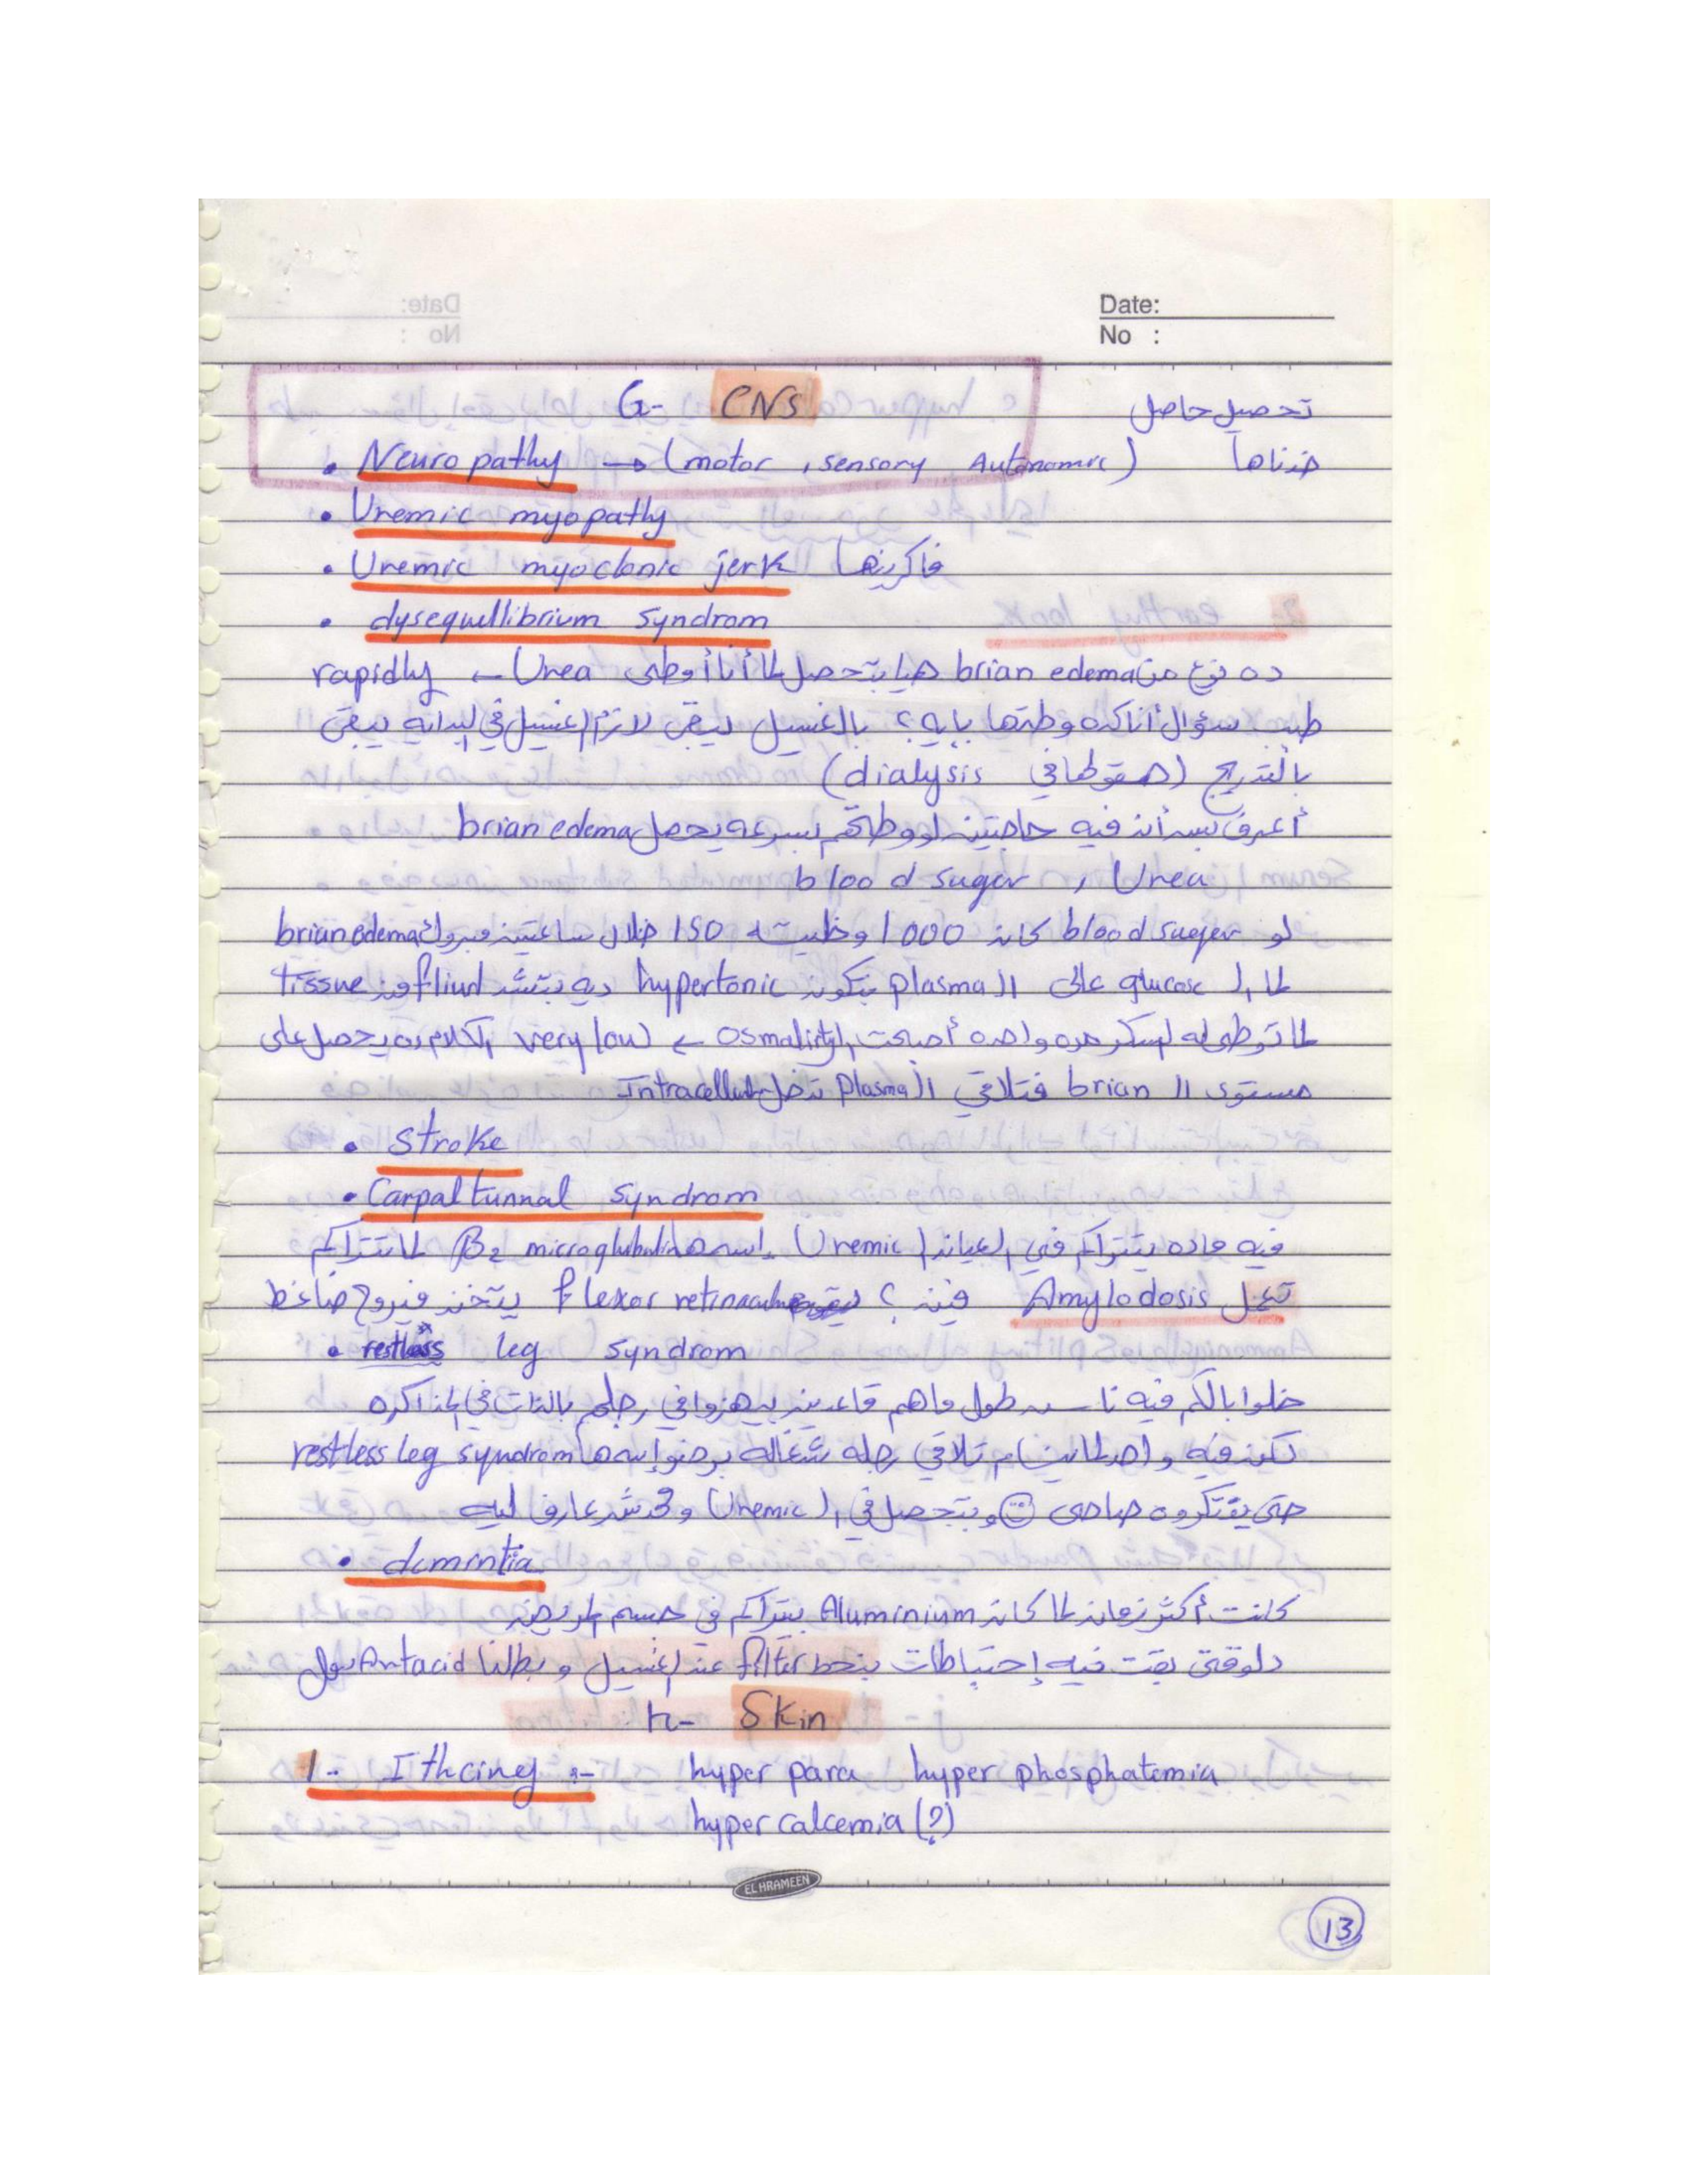 Date:
No :
G- CNS تحصيل حاصل
• Neuropathy → (motor, sensory Autonomic) خدناها
• Uremic myopathy
• Uremic myoclonic jerk فاكرينها
• dysequillibrium syndrom
ده نوع من brian edema بتحصل لما أنا أوطى Urea ← rapidly
طيب سؤال أنا كده وطيتها بإيه؟ بالغسيل يبقى لازم الغسيل في البدايه يبقى
بالتدريج (هقولها في dialysis)
أعرف بس أن فيه حاجتين لو وطيتهم بسرعه يحصل brian edema
blood suger , Urea
لو blood suger كان 1000 وطيته 150 خلال ساعتين مبروك brian edema
لما الـ glucose عالى الـ plasma بتكون hypertonic ديه بتشد fliud من tissue
لما توطى له السكر مره واحده أصبحت osmality ← very low الكلام ده يحصل على
مستوى الـ brian فتلاقي الـ plasma تدخل Intracellular
• Stroke
• Carpal tunnal syndrom
فيه ماده بتتراكم في العيان الـ Uremic اسمها β2 microglubulin لما تتراكم
تعمل Amylodosis فين؟ flexor retinaculum يتخن فيروح ضاغط
• restless leg syndrom
خلوا بالكم فيه ناس طول ماهم قاعدين بيهزوا في رجلهم بالذات في المذاكره
لكن فيه واحد لما ينام تلاقي رجله شغاله برضو إسمها restless leg syndrom
حتى يفتكروه صاحى ☺ وبتحصل في الـ Uremic ومحدش عارف ليه
• dementia
كانت أكثر زمان لما كان Aluminium بيتراكم في جسم المريض
دلوقتى بقت فيه إحتياطات بنحط filter عند الغسيل و بطلنا Antacid
h- Skin
1- Ithcing :- hyper para hyper phosphatemia
hyper calcemia (?)
EL HRAMEEN
13